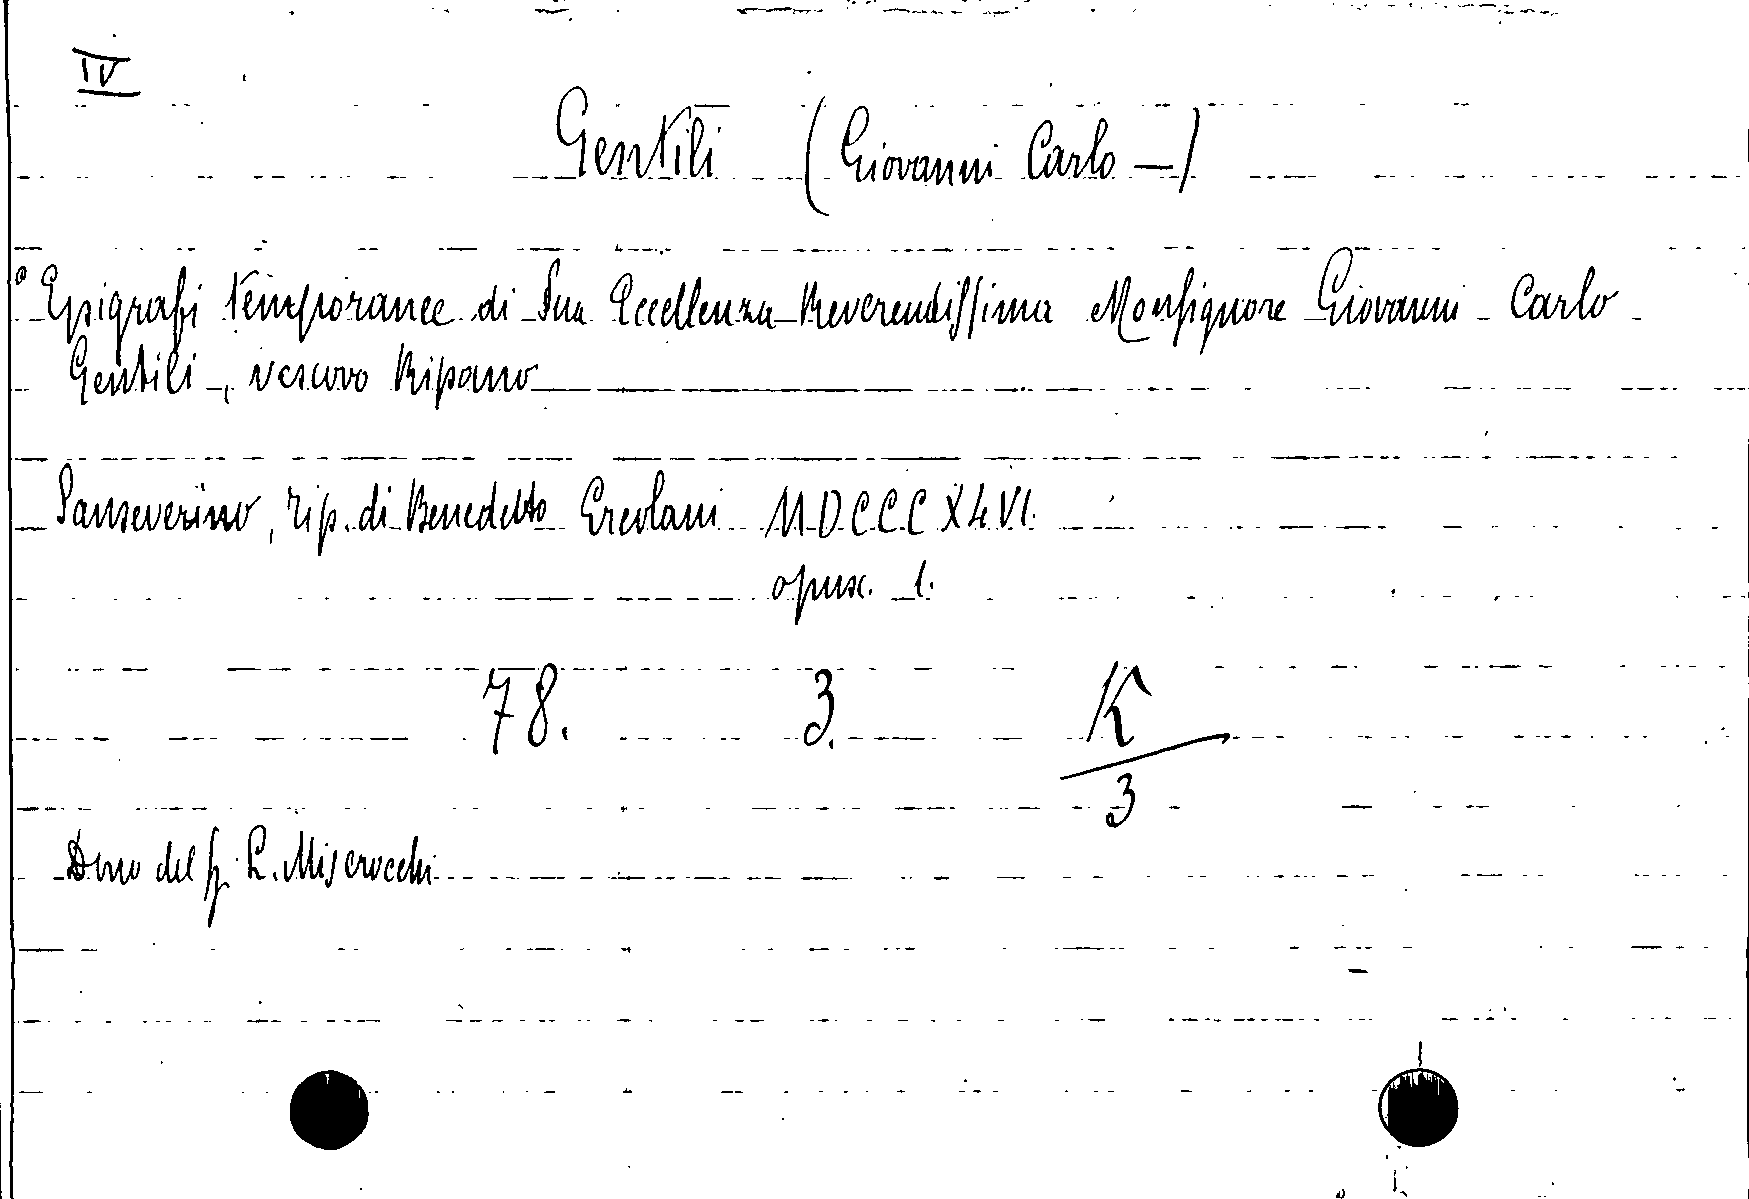 IV
Gentili (Giovanni Carlo —)
° Epigrafi temporanee di Sua Eccellenza Reverendissima Monsignore Giovanni Carlo
Gentili, vescovo Ripano
Sanseverino, tip. di Benedetto Ercolani MDCCCXLVI.
opusc. 1.
78. 3. K
3
Dono del L. Miserocchi